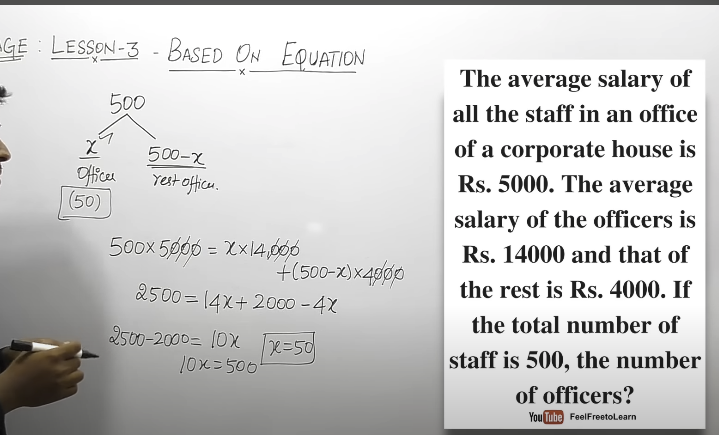 AGE : LESSON-3 - BASED ON EQUATION
500
x
500-x
Officer
rest officer.
(50)
500×5000 = x×14,000
+(500-x)×4000
2500 = 14x + 2000 - 4x
2500-2000 = 10x
x=50
10x = 500
The average salary of
all the staff in an office
of a corporate house is
Rs. 5000. The average
salary of the officers is
Rs. 14000 and that of
the rest is Rs. 4000. If
the total number of
staff is 500, the number
of officers?
YouTube FeelFreetoLearn